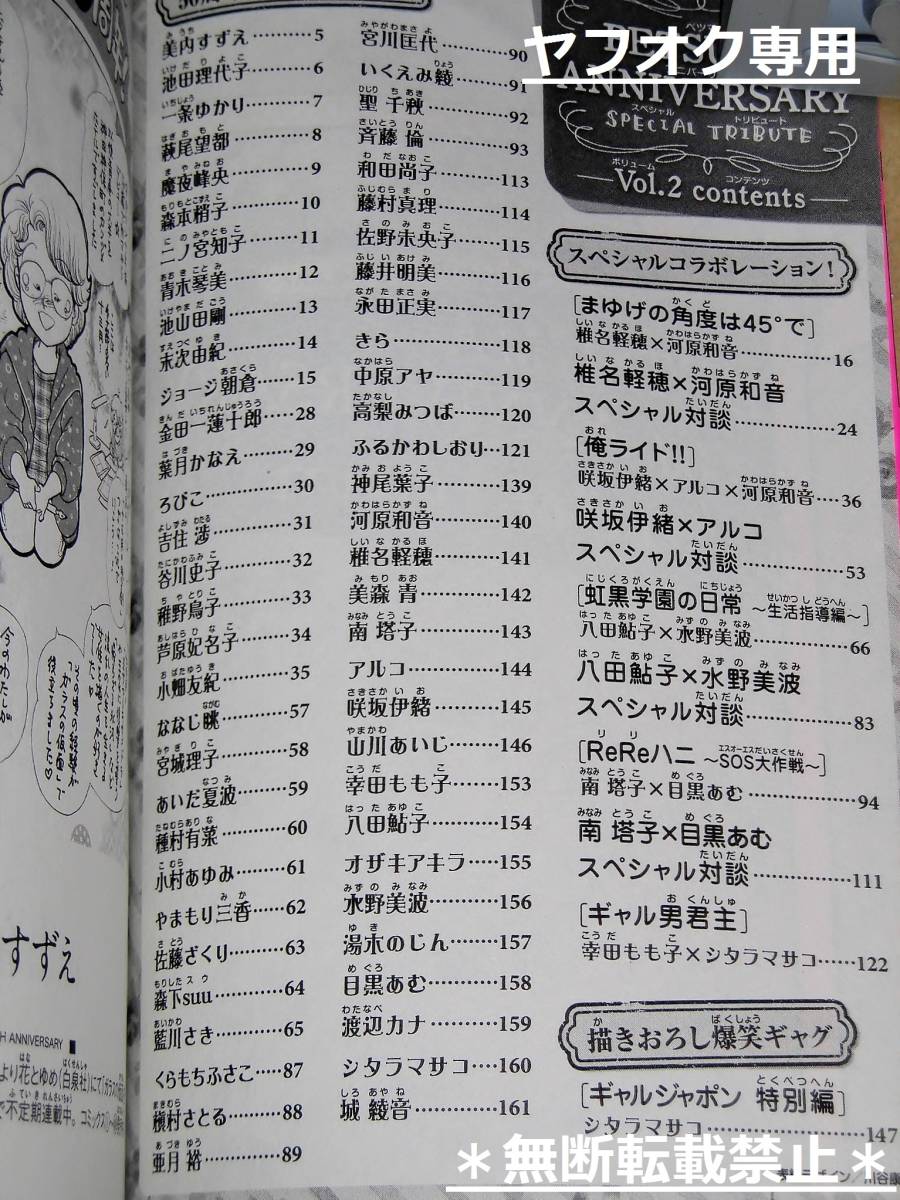 ヤフオク専用
ANNIVERSARY
SPECIAL TRIBUTE
Vol.2 contents
美内すずえ………5
池田理代子………6
一条ゆかり………7
萩尾望都………8
魔夜峰央………9
森本梢子………10
二ノ宮知子………11
青木琴美………12
池山田剛………13
末次由紀………14
ジョージ朝倉………15
金田一蓮十郎……28
葉月かなえ………29
ろびこ………30
吉住 渉………31
谷川史子………32
稚野鳥子………33
芦原妃名子………34
小畑友紀………35
ななじ眺………57
宮城理子………58
あいだ夏波………59
種村有菜………60
小村あゆみ………61
やまもり三香……62
佐藤ざくり………63
森下suu………64
藍川さき………65
くらもちふさこ……87
槇村さとる………88
亜月 裕………89
宮川匡代………90
いくえみ綾………91
聖 千秋………92
斉藤 倫………93
和田尚子………113
藤村真理………114
佐野未央子………115
藤井明美………116
永田正実………117
きら………118
中原アヤ………119
高梨みつば………120
ふるかわしおり…121
神尾葉子………139
河原和音………140
椎名軽穂………141
美森 青………142
南 塔子………143
アルコ………144
咲坂伊緒………145
山川あいじ………146
幸田もも子………153
八田鮎子………154
オザキアキラ……155
水野美波………156
湯木のじん………157
目黒あむ………158
渡辺カナ………159
シタラマサコ……160
城 綾音………161
スペシャルコラボレーション!
[まゆげの角度は45°で]
椎名軽穂×河原和音………16
椎名軽穂×河原和音
スペシャル対談………24
[俺ライド!!]
咲坂伊緒×アルコ×河原和音…36
咲坂伊緒×アルコ
スペシャル対談………53
[虹黒学園の日常 ~生活指導編~]
八田鮎子×水野美波………66
八田鮎子×水野美波
スペシャル対談………83
[ReReハニ ~SOS大作戦~]
南 塔子×目黒あむ………94
南 塔子×目黒あむ
スペシャル対談………111
[ギャル男君主]
幸田もも子×シタラマサコ……122
描きおろし爆笑ギャグ
[ギャルジャポン 特別編]
シタラマサコ………147
すずえ
H ANNIVERSARY ■
より花とゆめ(白泉社)にて
で不定期連載中。コミックス
＊無断転載禁止＊